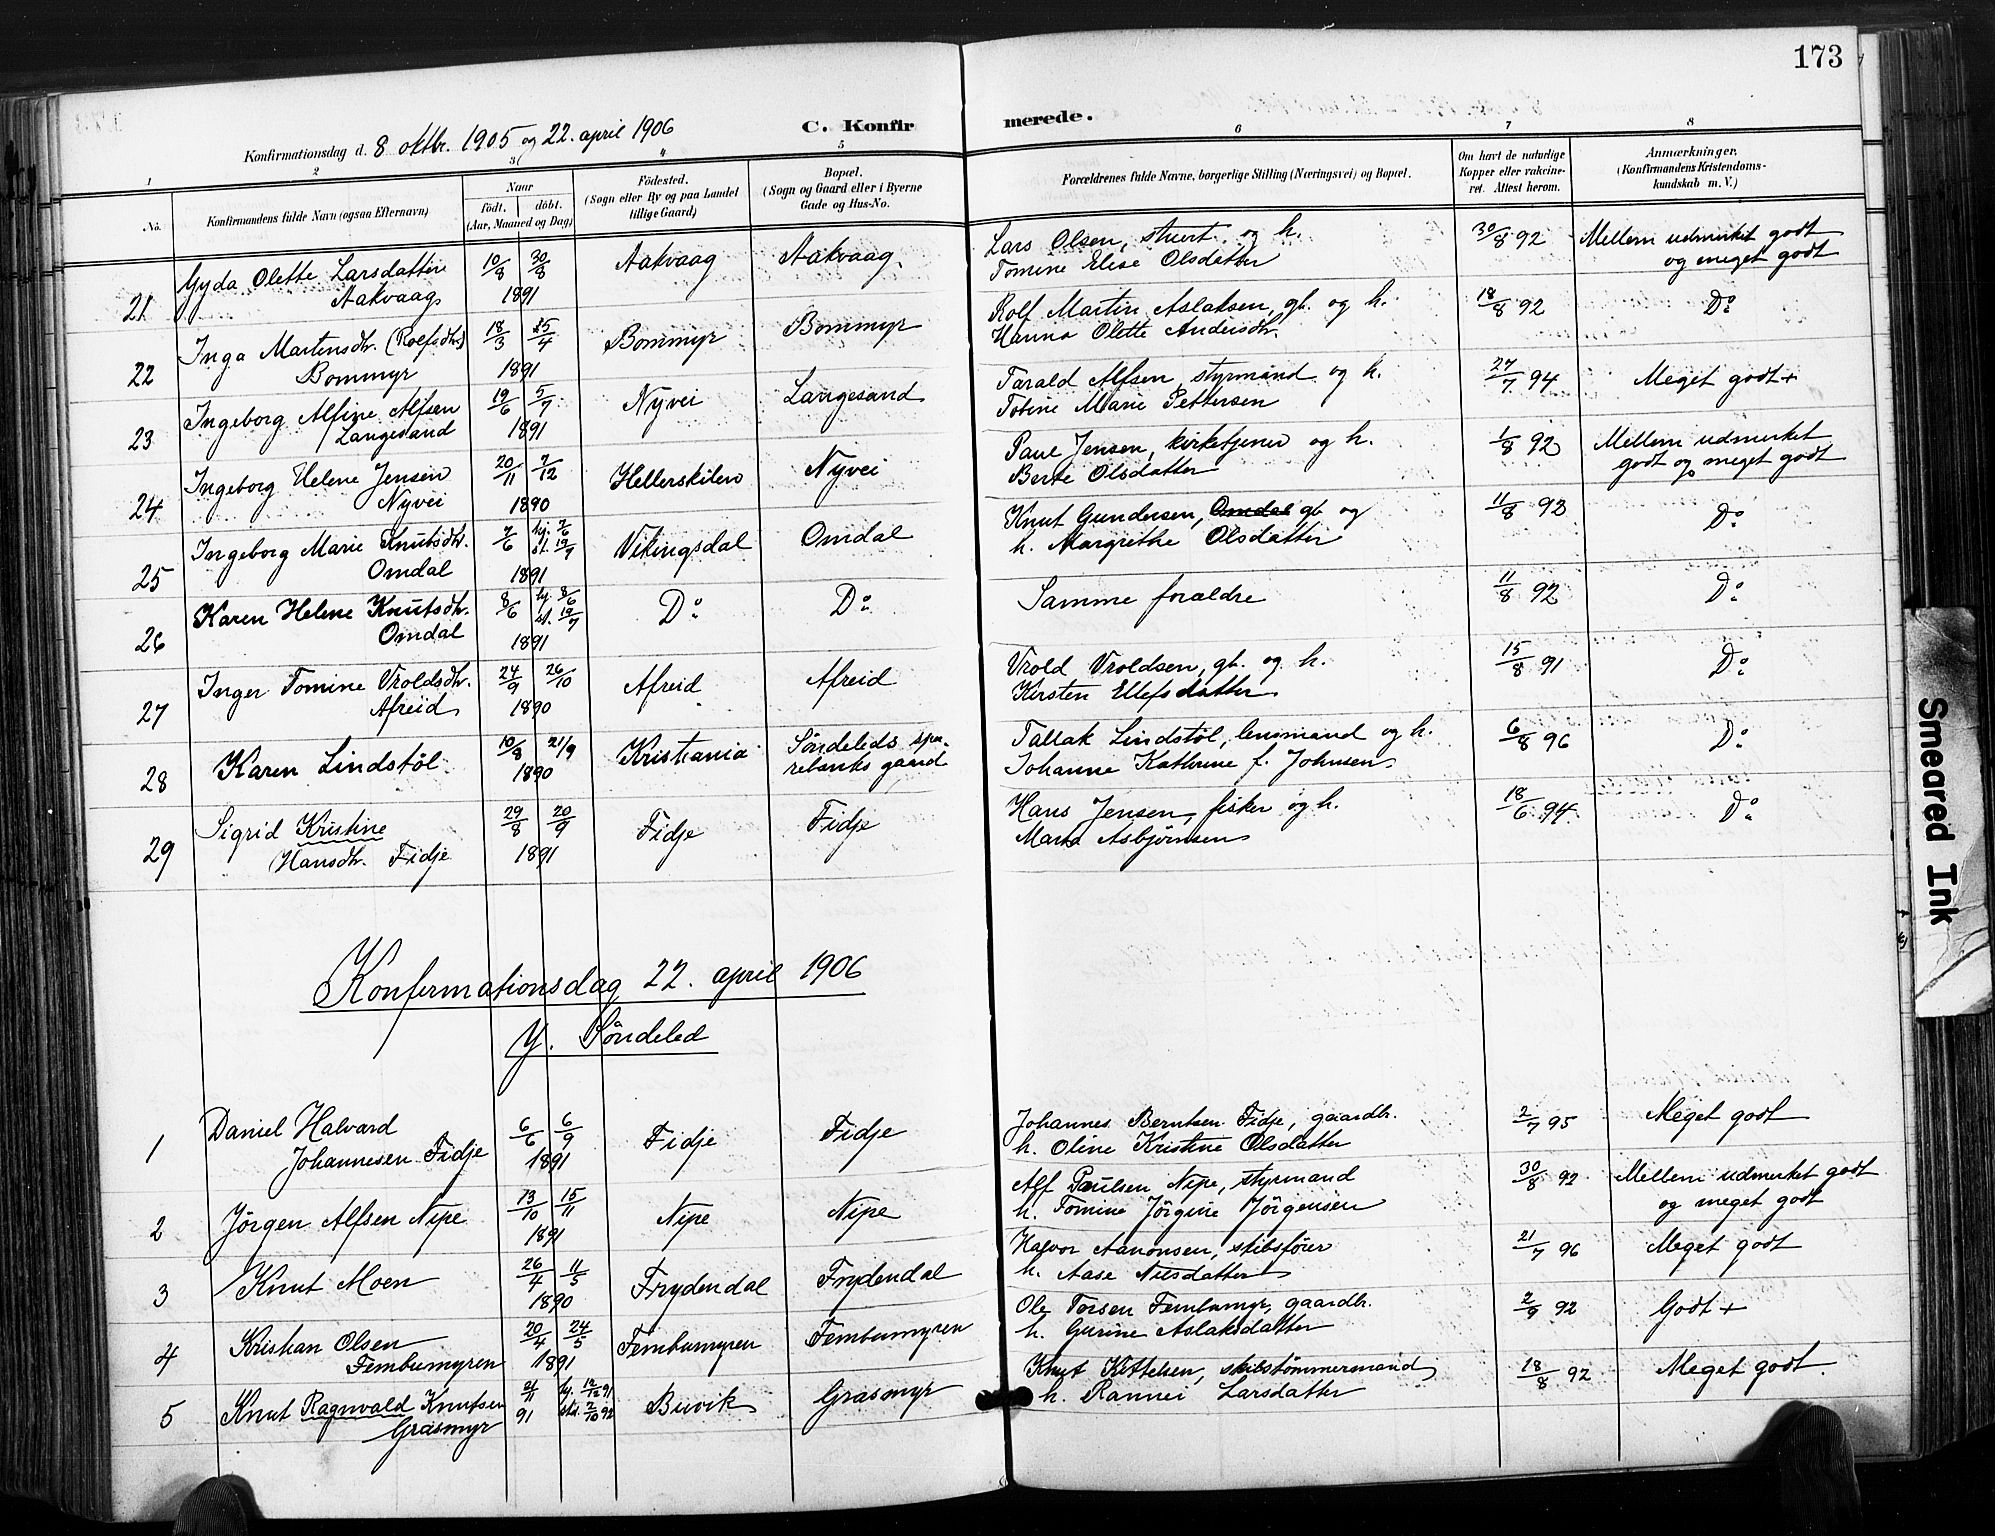 173
Konfirmationsdag d. 8 oktbr. 1905 og 22. april 1906
C. Konfirmerede.
1 2 3 4 5 6 7 8
No.
Konfirmandens fulde Navn (ogsaa Efternavn)
Naar
födt. döbt.
(Aar, Maaned og Dag)
Födested.
(Sogn eller By og paa Landet
tillige Gaard)
Bopæl.
(Sogn og Gaard eller i Byerne
Gade og Hus-No.
Forældrenes fulde Navne, borgerlige Stilling (Næringsvei) og Bopæl.
Om havt de naturlige
Kopper eller vakcine-
ret. Attest herom.
Anmærkninger.
(Konfirmandens Kristendoms-
kundskab m. V.)
21 Gyda Olette Larsdatter 10/8 30/8 Aakvaag Aakvaag Lars Olsen, stuert og h. 30/8 92 Mellem udmerket godt
Aakvaag 1891 Tomine Elise Olsdatter og meget godt
22 Inga Martensdtr. (Roefsdtr) 18/3 25/4 Bommyr Bommyr Rolf Martin Aslaksen, gb. og h. 18/8 92 Do
Bommyr 1891 Hanna Olette Andersdtr.
23 Ingeborg Alfine Alfsen 19/6 5/7 Nyvei Langesand Tarald Alfsen, styrmand og h. 27/7 94 Meget godt +
Langesand 1891 Tobine Marie Pettersen
24 Ingeborg Helene Jensen 20/11 7/12 Hellerskilen Nyvei Paul Jensen, kirketjener og h. 1/8 92 Mellem udmerket
Nyvei 1890 Berte Olsdatter godt og meget godt
25 Ingeborg Marie Knutsdtr. 7/6 hj. 7/6 st. 19/7 Vikingsdal Omdal Knut Gundersen, Omdal gb og 11/8 92 Do
Omdal 1891 h. Margrethe Olsdatter
26 Karen Helene Knutsdtr. 8/6 hj. 8/6 st. 19/7 Do Do Samme forældre 11/8 92 Do
Omdal 1891
27 Inger Tomine Vroldsdtr. 24/9 26/10 Afreid Afreid Vrold Vroldsen, gb. og h. 15/8 91 Do
Afreid 1890 Kirsten Ellefsdatter
28 Karen Lindstöl 10/8 21/9 Kristiania Söndeleds spa- Tallak Lindstöl, lensmand og h. 6/8 96 Do
1890 rebanks gaard Johanne Kathrine f. Johnsen
29 Sigrid Kristine 29/8 20/9 Fidje Fidje Hans Jensen, fisker og h. 18/6 94 Do
Hansdtr. Fidje 1891 Marta Asbjørnsen
Konfirmationsdag 22. april 1906
Y. Söndeled
1 Daniel Halvard 6/6 6/9 Fidje Fidje Johannes Berntsen Fidje, gaardbr. 2/7 95 Meget godt
Johannesen Fidje 1891 h. Oline Kristine Olsdatter
2 Jörgen Alfsen Nipe 13/10 15/11 Nipe Nipe Alf Paulsen Nipe, styrmand 30/8 92 Mellem udmerket godt
1891 h. Tomine Jörgine Jörgensen og meget godt
3 Knut Moen 26/4 11/5 Frydendal Frydendal Halvor Aanonsen, skibsfører 21/7 96 Meget godt
1890 h. Aase Nilsdatter
4 Kristian Olsen 20/4 24/5 Fembumyren Fembumyren Ole Torsen Fembumyr, gaardbr. 2/9 92 Godt +
Fembumyren 1891 h. Gurine Aslaksdatter
5 Knut Ragnvald Knutsen 21/11 hj. 12/12 91 Buvik Grasmyr Knut Kittelsen, skibstömmermand 18/8 92 Meget godt.
Grasmyr 91 st. 2/10 92 h. Rannei Larsdatter
Smeared Ink